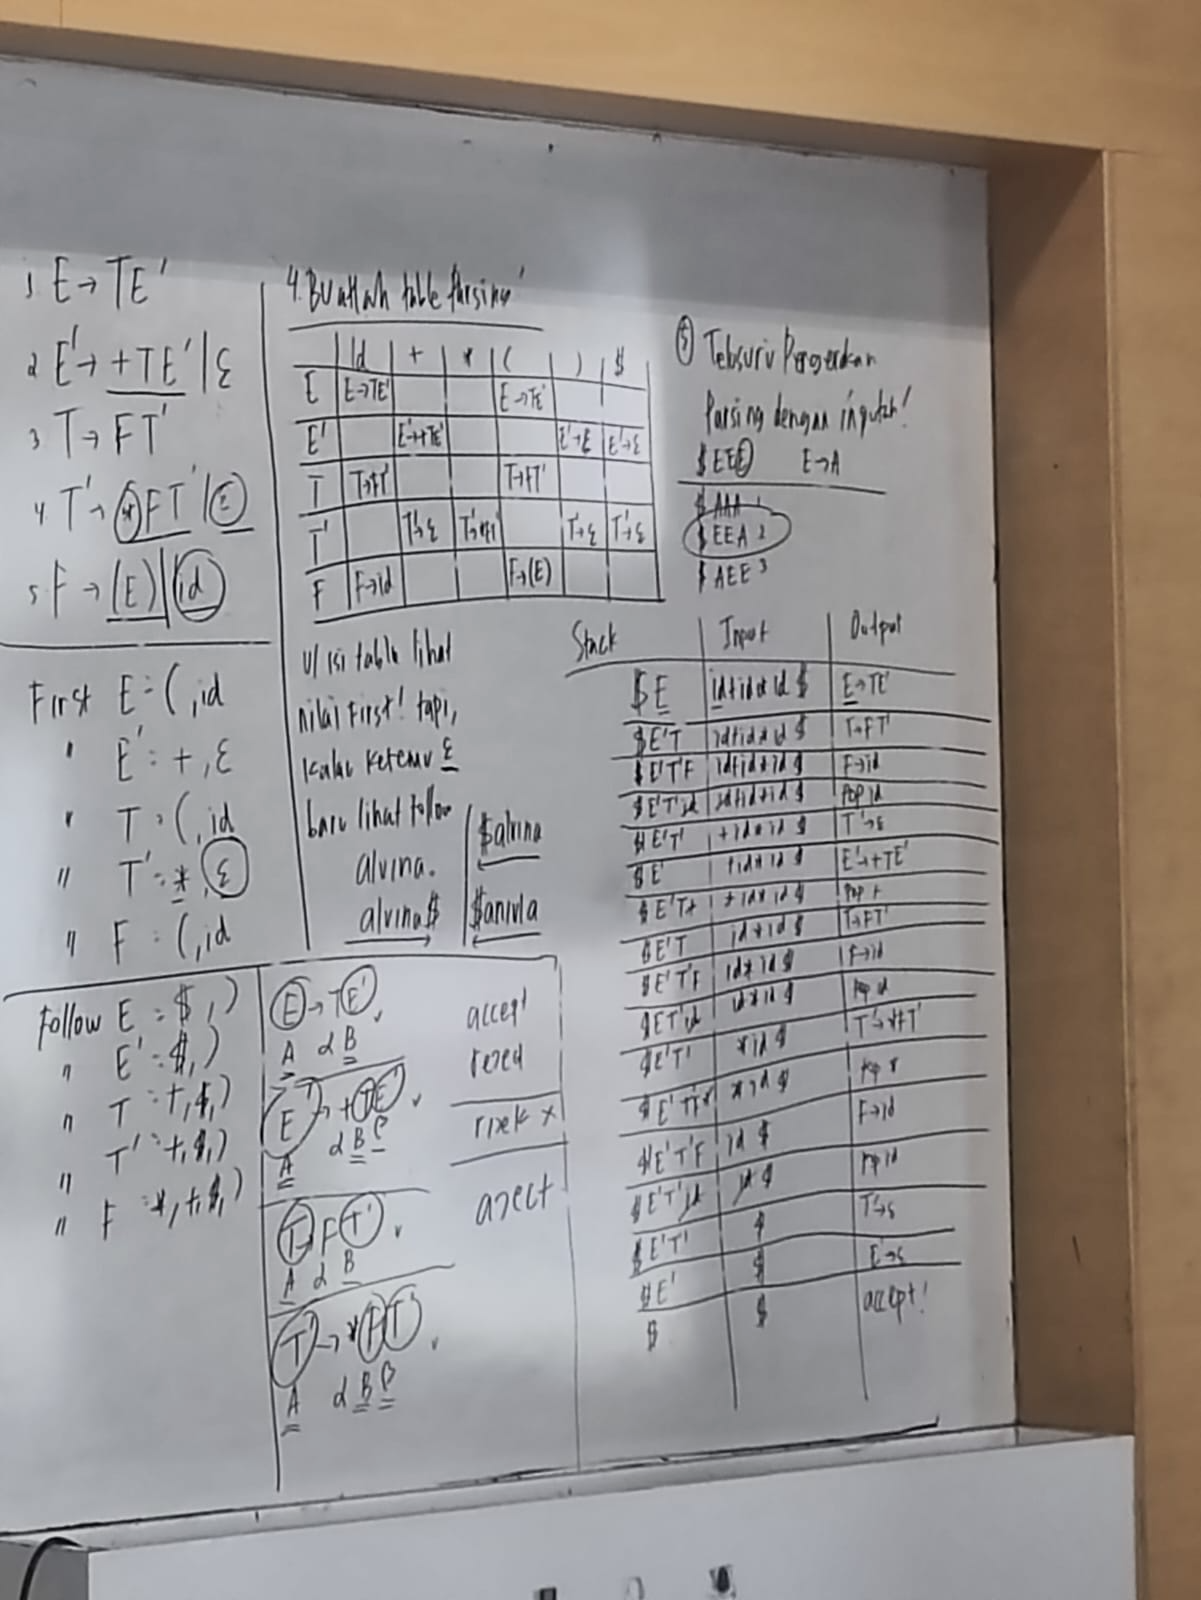 1. E → TE'
2 E' → +TE' | ε
3 T → FT'
4. T' → *FT' | ε
5. F → (E) | id
First E = (, id
" E' = +, ε
" T = (, id
" T' = *, ε
" F = (, id
Follow E = $, )
" E' = $, )
" T = +, $, )
" T' = +, $, )
" F = *, +, $, )
4. Buatlah table Parsing'
Id + * ( ) $
E E→TE' E→TE'
E' E'→+TE' E'→ε E'→ε
T T→FT' T→FT'
T' T'→ε T'→*FT' T'→ε T'→ε
F F→id F→(E)
U/ isi table lihat
nilai First! tapi,
kalau ketemu ε
baru lihat follow
alvina.
alvina$
$alvina
$anivla
E → TE'
A α B
E' → +TE'
A α B β
T → FT'
A α B
T' → *FT'
A α B β
accept
x
5
Parsing dengan
$EEE E→A
$AAA 1
$EEA 2
$AEE 3
Stack Input Output
$E id+id*id $ E→TE'
$E'T id+id*id $ T→FT'
$E'T'F id+id*id $ F→id
$E'T'id id+id*id $ Pop id
$E'T' +id*id $ T'→ε
$E' +id*id $ E'→+TE'
$E'T+ +id*id $ Pop +
$E'T id*id $ T→FT'
$E'T'F id*id $ F→id
$E'T'id id*id $ Pop id
$E'T' *id $ T'→*FT'
$E'T'F* *id $ Pop *
$E'T'F id $ F→id
$E'T'id id $ Pop id
$E'T' $ T'→ε
$E' $ E'→ε
$ $ accept!